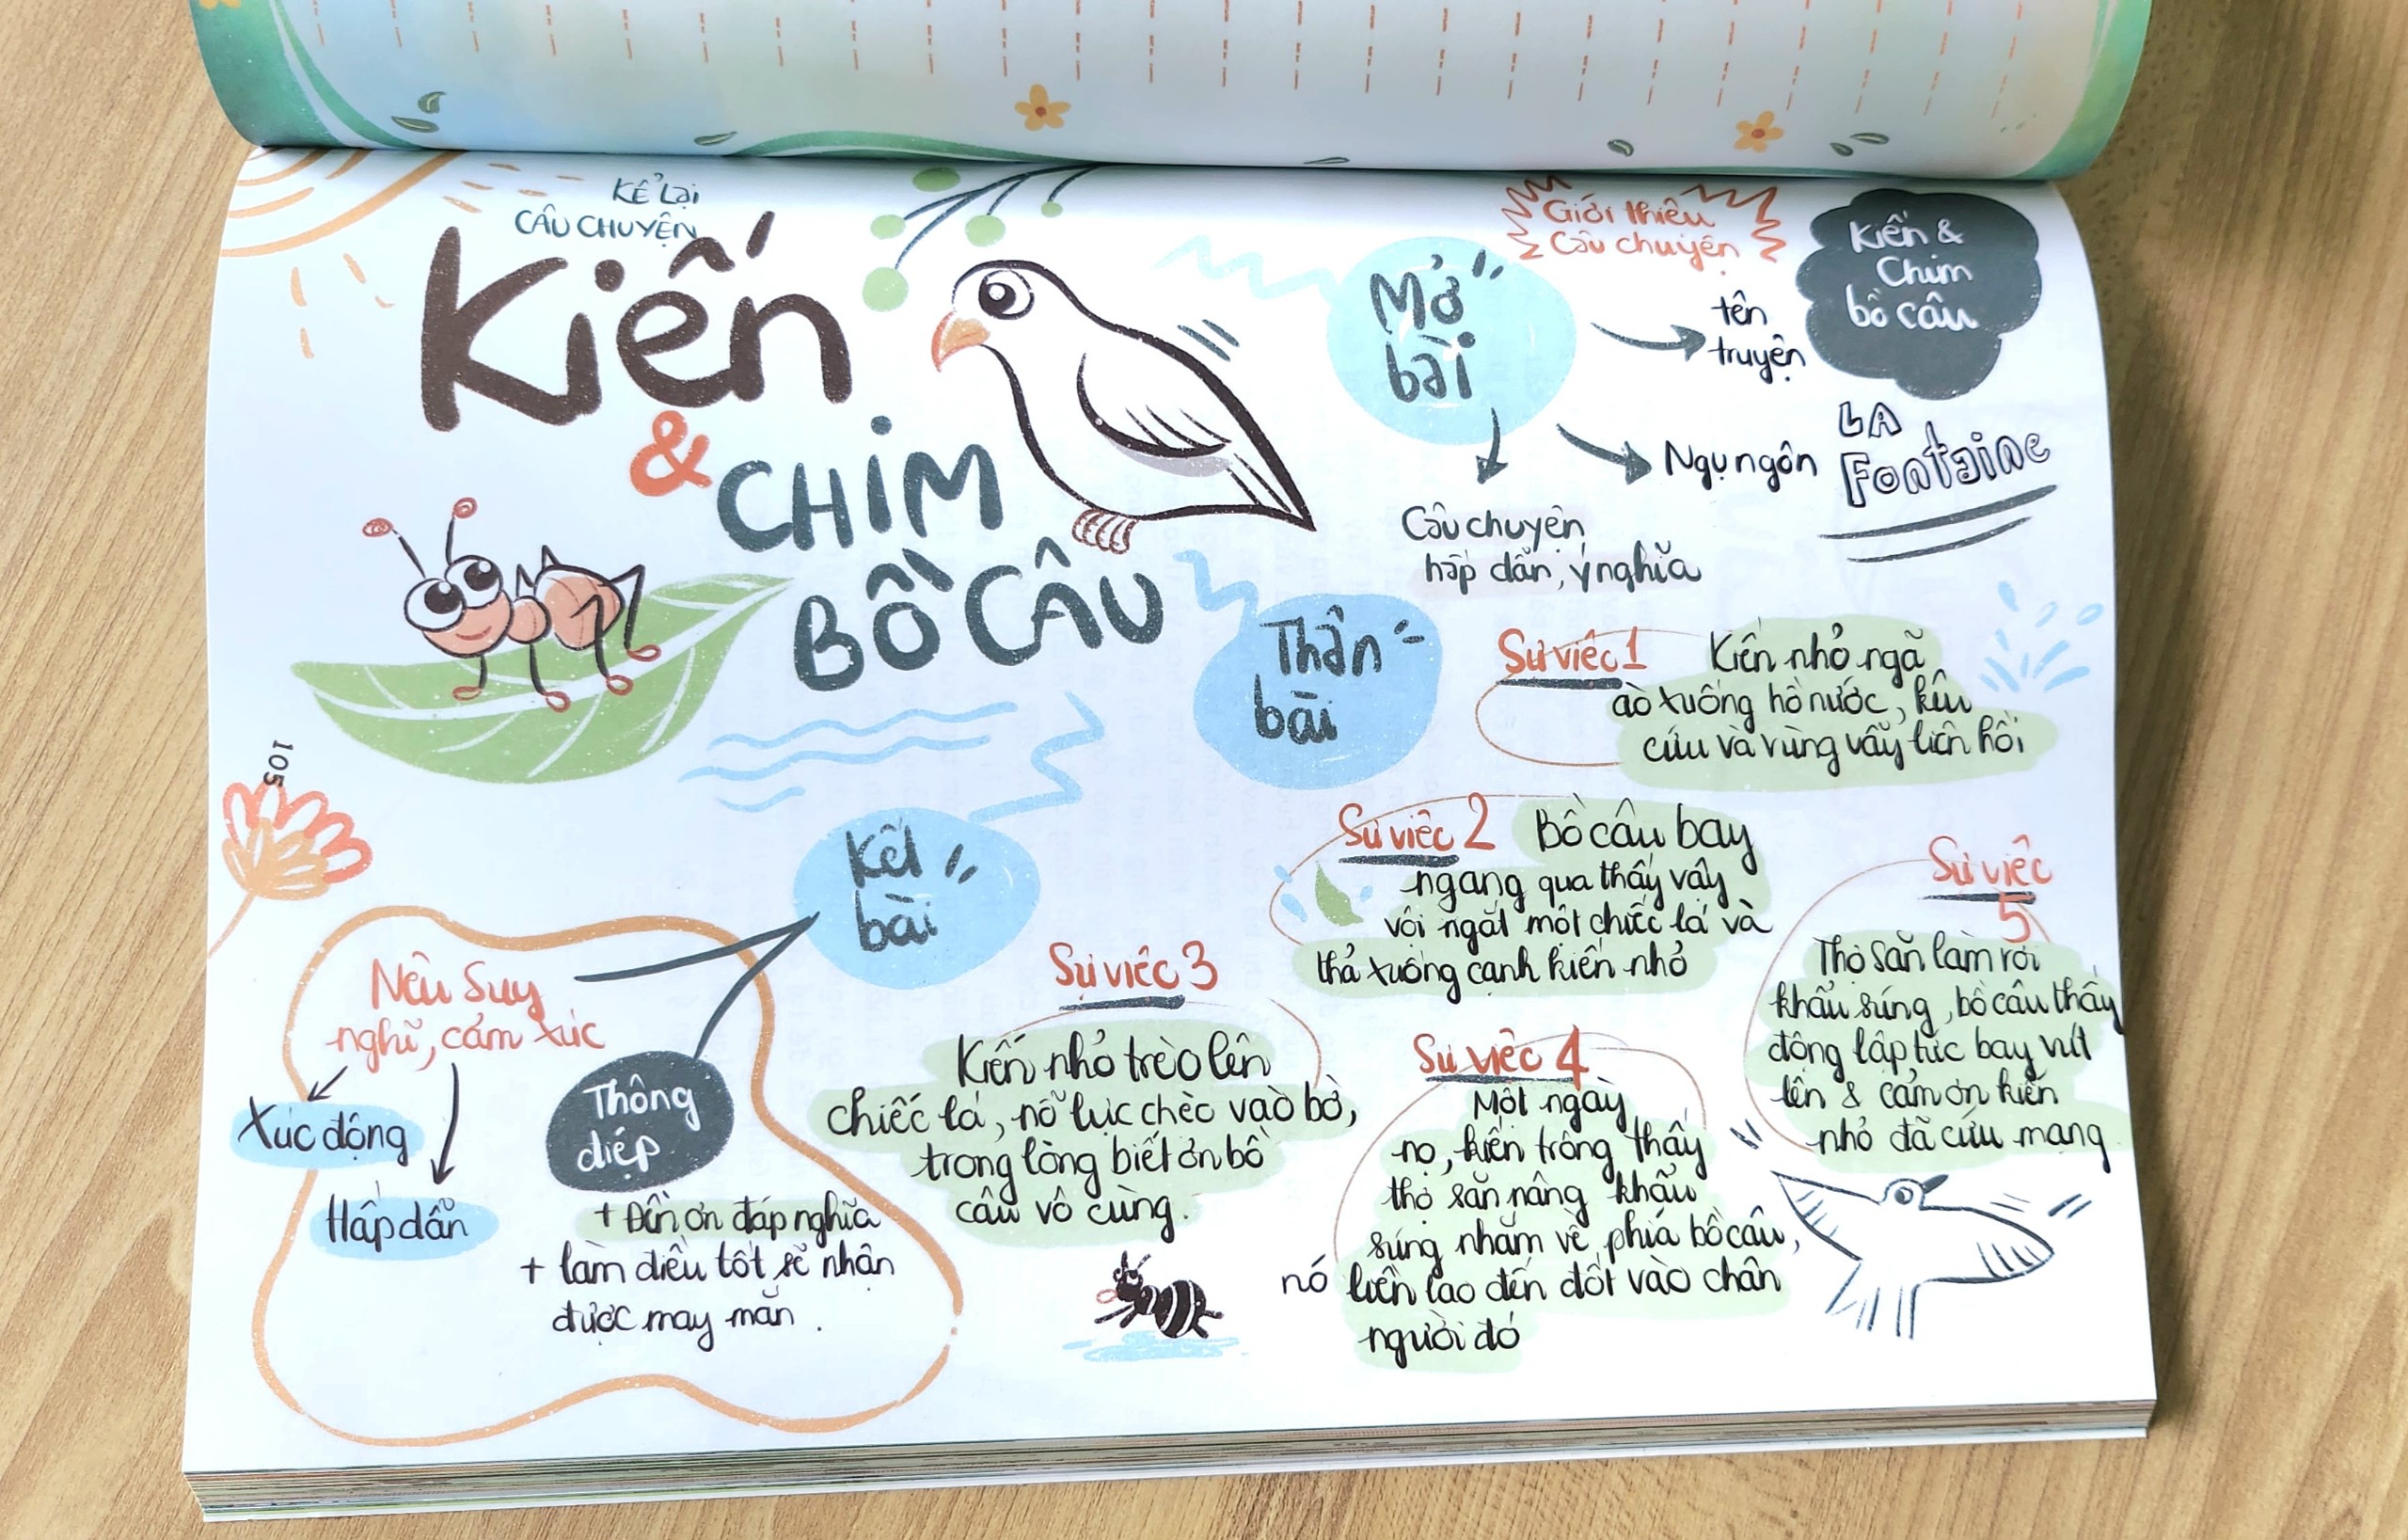 Kể lại
câu chuyện
Kiến
&
CHIM
BỒ CÂU
Mở
bài
Giới thiệu
Câu chuyện
tên
truyện
Kiến &
Chim
bồ câu
Ngụ ngôn
LA
Fontaine
Câu chuyện
hấp dẫn, ý nghĩa
Thân
bài
Sự việc 1
Kiến nhỏ ngã
ào xuống hồ nước, kêu
cứu và vùng vẫy liên hồi
Sự việc 2
Bồ câu bay
ngang qua thấy vậy
vội ngắt một chiếc lá và
thả xuống cạnh kiến nhỏ
Sự việc 3
Kiến nhỏ trèo lên
chiếc lá, nỗ lực chèo vào bờ,
trong lòng biết ơn bồ
câu vô cùng.
Sự việc 4
Một ngày
nọ, kiến trông thấy
thợ săn nâng khẩu
súng nhắm về phía bồ câu,
nó liền lao đến đốt vào chân
người đó
Sự việc
5
Thợ săn làm rơi
khẩu súng, bồ câu thấy
động lập tức bay vút
lên & cảm ơn kiến
nhỏ đã cứu mạng
Kết
bài
Nêu suy
nghĩ, cảm xúc
Xúc động
Hấp dẫn
Thông
điệp
+ Đền ơn đáp nghĩa
+ làm điều tốt sẽ nhận
được may mắn.
105